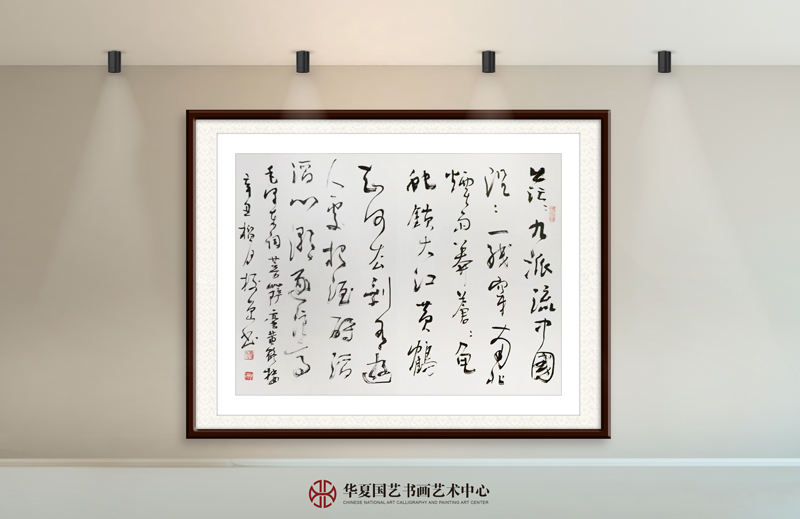 茫茫九派流中國
沉沉一线穿南北
煙雨莽蒼蒼龟
蛇鎖大江黄鶴
知何去剩有遊
人處把酒酹滔
滔心潮逐浪高
毛泽东词菩萨蛮黄鹤楼
辛丑榴月书
华夏国艺书画艺术中心
CHINESE NATIONAL ART CALLIGRAPHY AND PAINTING ART CENTER